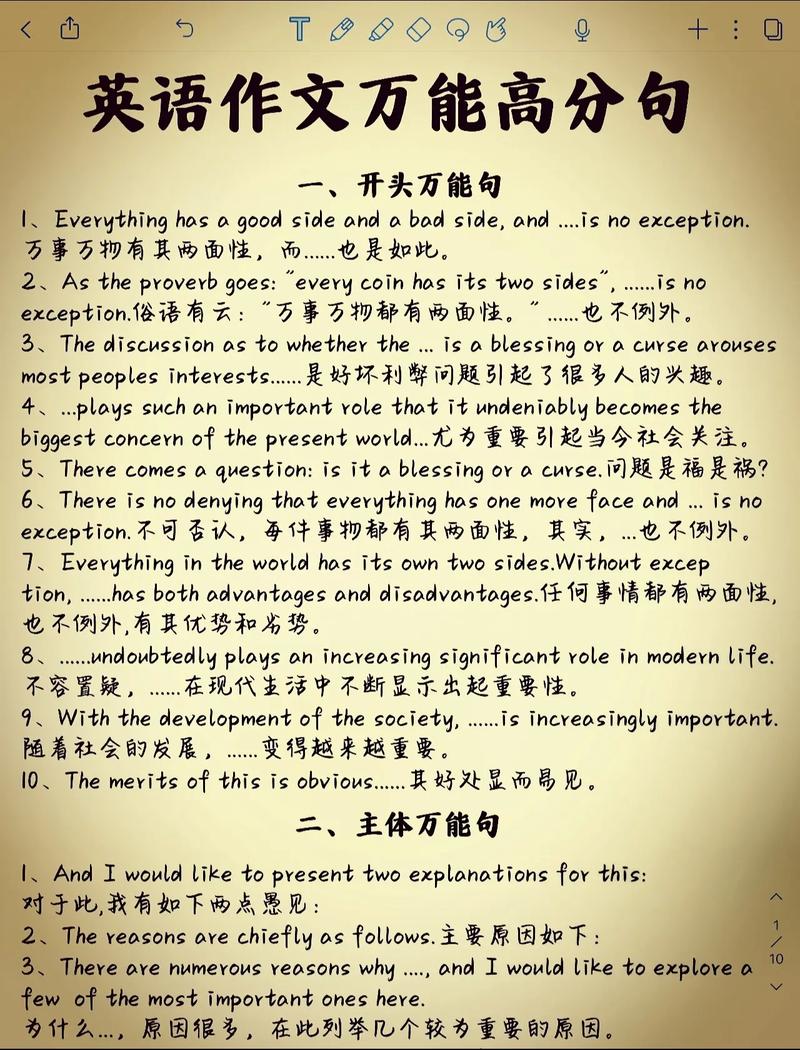 英语作文万能高分句
一、开头万能句
1、Everything has a good side and a bad side, and ....is no exception.
万事万物有其两面性，而......也是如此。
2、As the proverb goes: "every coin has its two sides", ......is no
exception.俗语有云："万事万物都有两面性。"......也不例外。
3、The discussion as to whether the ... is a blessing or a curse arouses
most peoples interests......是好坏利弊问题引起了很多人的兴趣。
4、...plays such an important role that it undeniably becomes the
biggest concern of the present world...尤为重要引起当今社会关注。
5、There comes a question: is it a blessing or a curse.问题是福是祸?
6、There is no denying that everything has one more face and ... is no
exception.不可否认，每件事物都有其两面性，其实，...也不例外。
7、Everything in the world has its own two sides.Without excep
tion, ......has both advantages and disadvantages.任何事情都有两面性,
也不例外,有其优势和劣势。
8、......undoubtedly plays an increasing significant role in modern life.
不容置疑，......在现代生活中不断显示出起重要性。
9、With the development of the society, ......is increasingly important.
随着社会的发展，......变得越来越重要。
10、The merits of this is obvious......其好处显而易见。
二、主体万能句
1、And I would like to present two explanations for this:
对于此,我有如下两点愚见：
2、The reasons are chiefly as follows.主要原因如下：
3、There are numerous reasons why ...., and I would like to explore a
few of the most important ones here.
为什么...，原因很多，在此列举几个较为重要的原因。
1
/
10